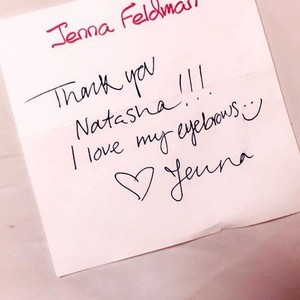 Jenna Feldman
Thank you
Natasha!!!
I love my eyebrows
Jenna